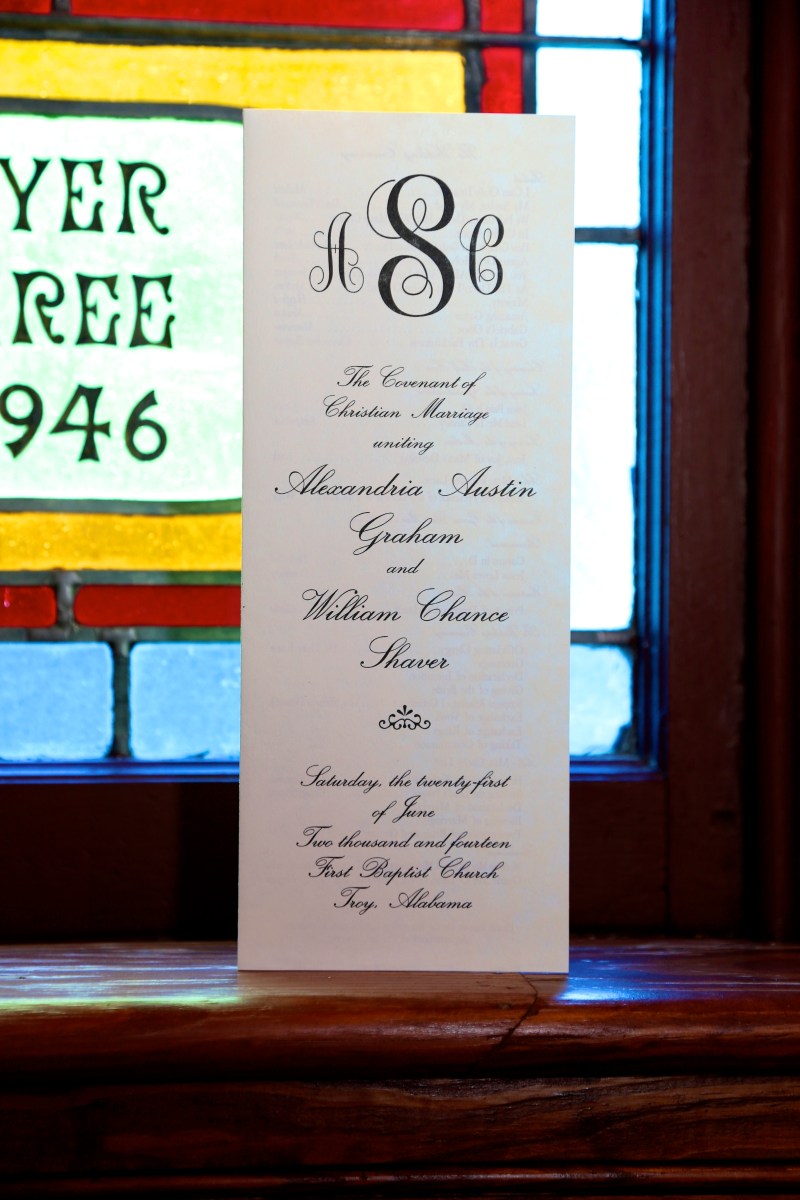 YER
REE
946
A S C
The Covenant of
Christian Marriage
uniting
Alexandria Austin
Graham
and
William Chance
Shaver
Saturday, the twenty-first
of June
Two thousand and fourteen
First Baptist Church
Troy, Alabama